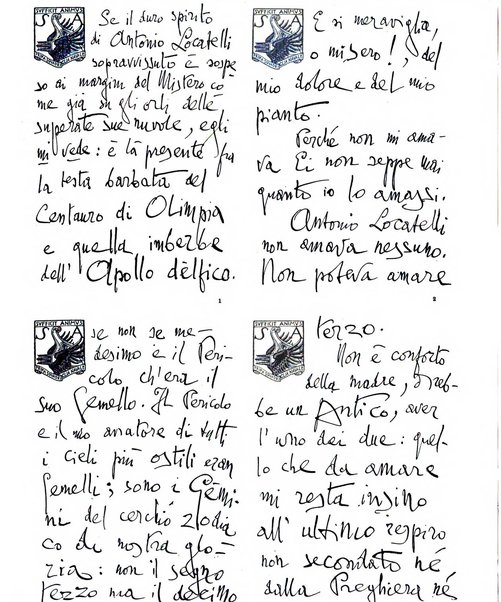 SVFFICIT ANIMVS
S A
Se il duro spirito
di Antonio Locatelli
sopravvissuto è sospe-
so ai margini del Mistero co-
me già su gli orli delle
superate sue nuvole, egli
mi vede: è là presente fra
la testa barbata del
Centauro di Olimpia
e quella imberbe
dell' Apollo dèlfico.
1
SVFFICIT ANIMVS
S A
E si meraviglia,
o misero!, del
mio dolore e del mio
pianto.
Perché non mi ama-
va Ei non seppe mai
quanto io lo amassi.
Antonio Locatelli
non amava nessuno.
Non poteva amare
2
SVFFICIT ANIMVS
S A
se non se me-
desimo e il Peri-
colo ch'era il
suo Gemello. Il Pericolo
e il mio amatore di tutti
i cieli più ostili eran
Gemelli; sono i Gèmi-
ni del cerchio zodia
co de nostra glo-
ria: non il segno
terzo ma il decimo
SVFFICIT ANIMVS
S A
terzo.
Non è conforto
della madre, direb-
be un Antico, aver
l'uno dei due: quel-
lo che da amare
mi resta insino
all' ultimo respiro
non secondato né
dalla Preghiera né